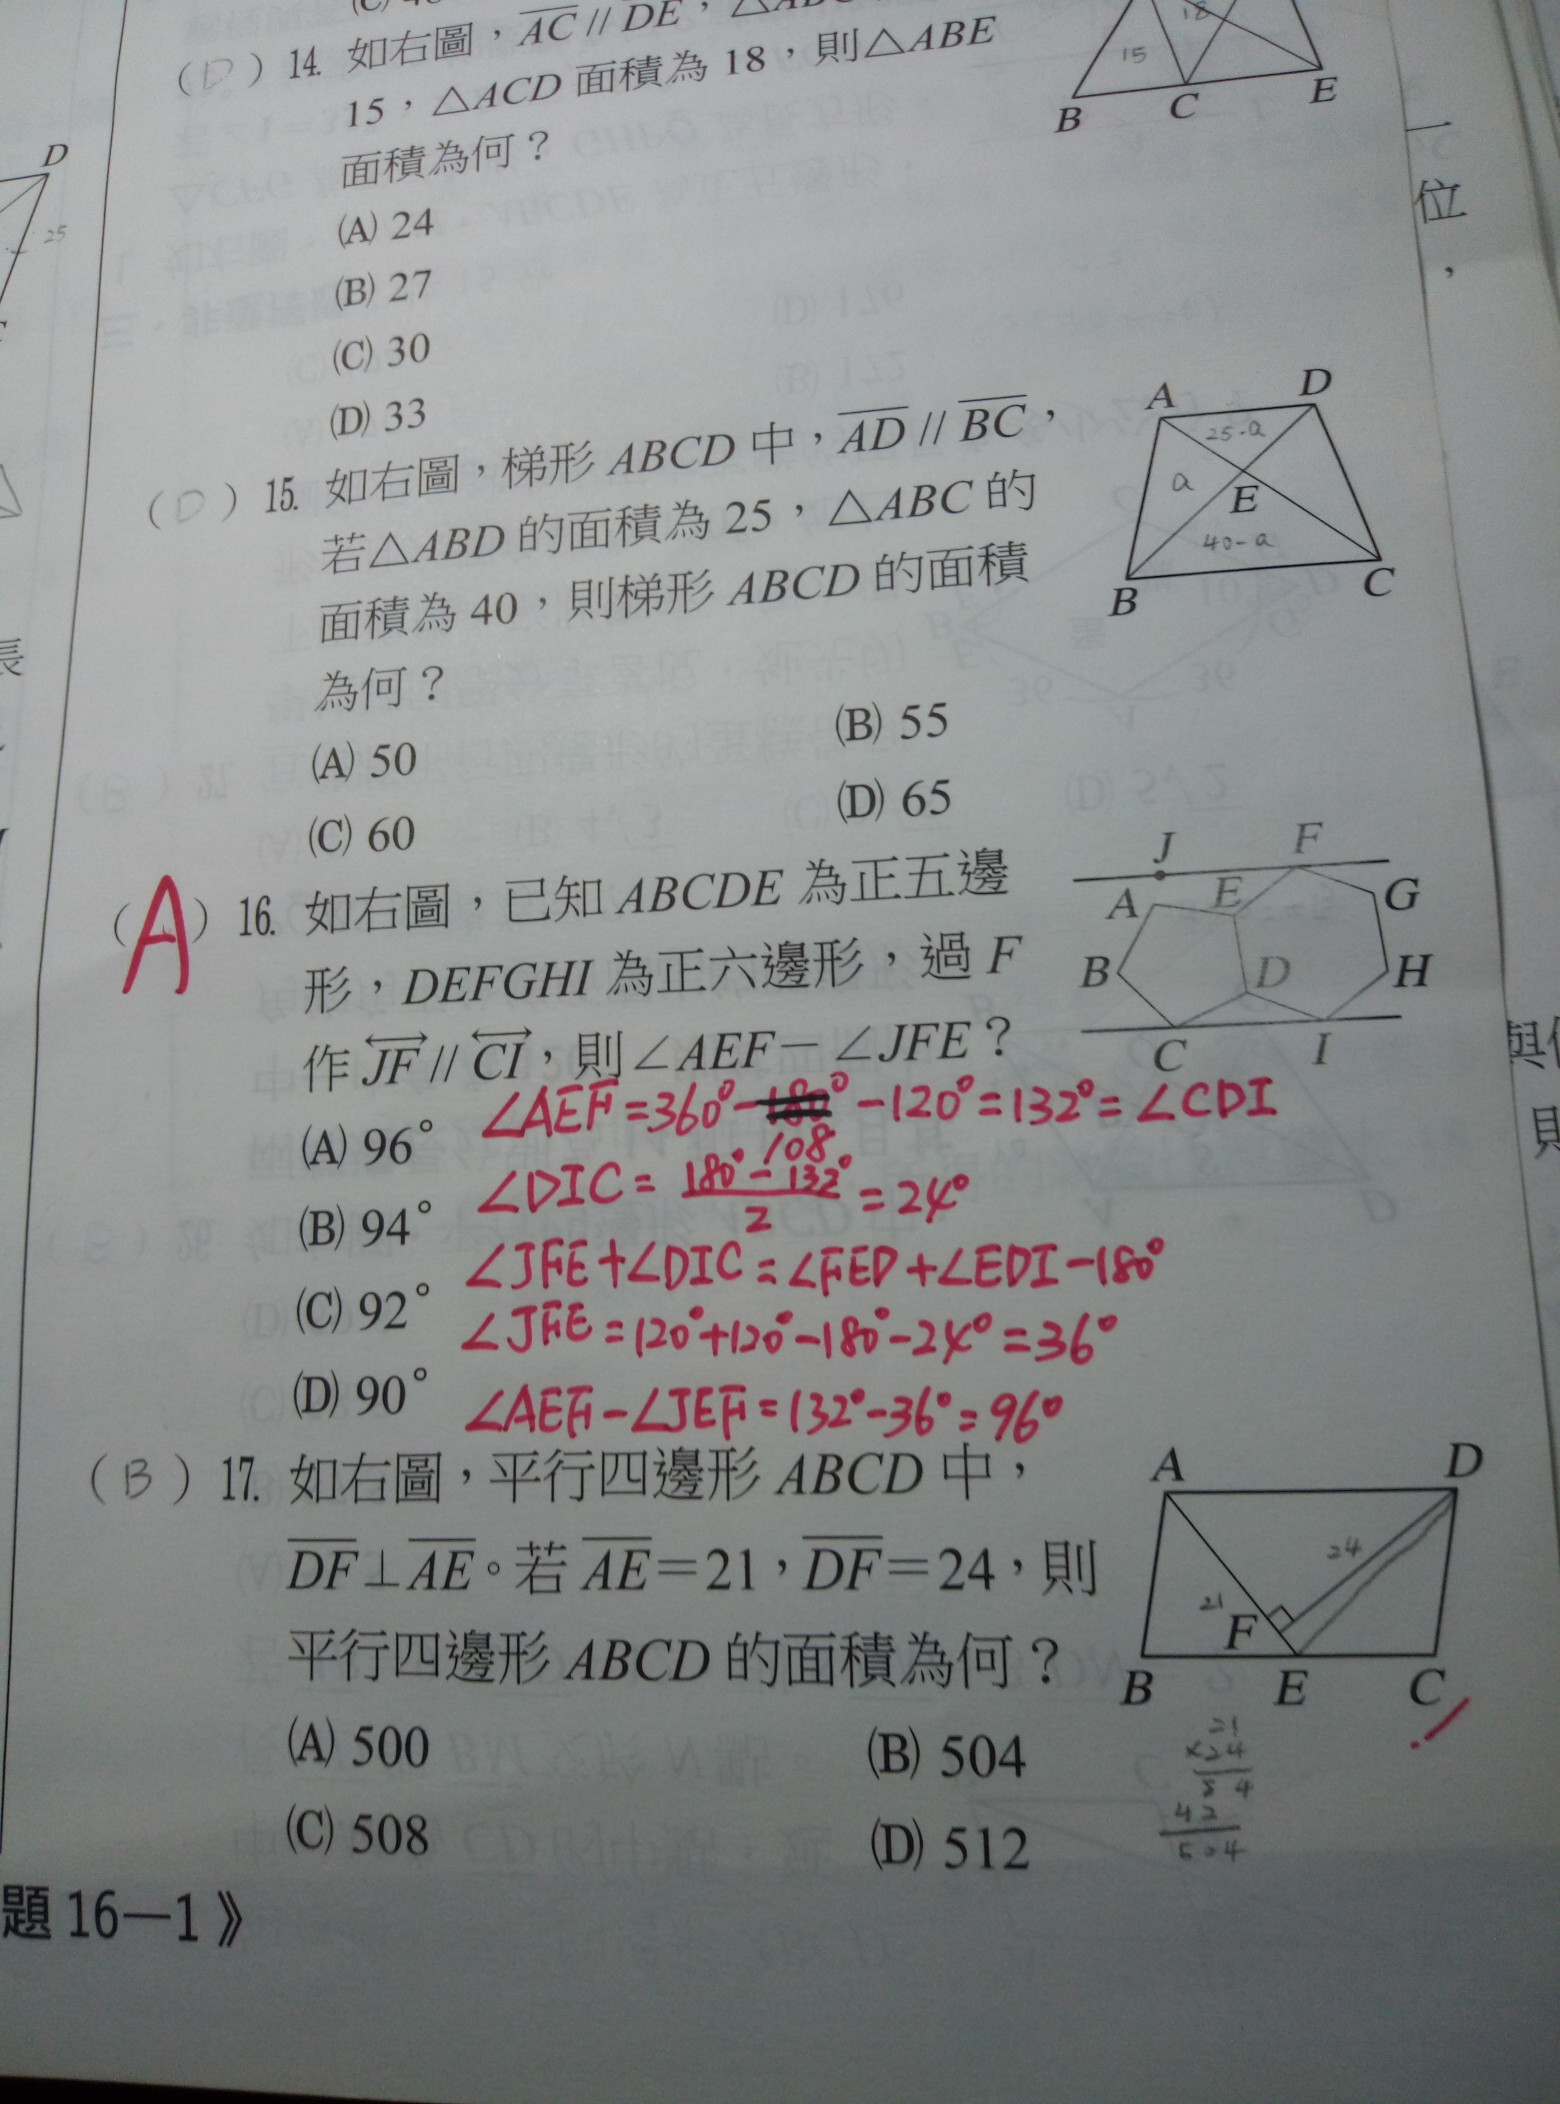 (D) 14. 如右圖，AC // DE，△ABC
15，△ACD 面積為 18，則△ABE
面積為何？
(A) 24
(B) 27
(C) 30
(D) 33
15
18
B
C
E
D
25
一
位
，
(D) 15. 如右圖，梯形 ABCD 中，AD // BC，
若△ABD 的面積為 25，△ABC 的
面積為 40，則梯形 ABCD 的面積
為何？
(A) 50
(B) 55
(C) 60
(D) 65
A
D
25-a
a
E
40-a
B
C
長
(A) 16. 如右圖，已知 ABCDE 為正五邊
形，DEFGHI 為正六邊形，過 F
作 JF // CI，則∠AEF－∠JFE？
(A) 96°
(B) 94°
(C) 92°
(D) 90°
J
F
A
E
G
B
D
H
C
I
∠AEF=360°-108°-120°=132°=∠CDI
∠DIC=180°-132°/2=24°
∠JFE+∠DIC=∠FED+∠EDI-180°
∠JFE=120°+120°-180°-24°=36°
∠AEF-∠JEF=132°-36°=96°
與
則
(B) 17. 如右圖，平行四邊形 ABCD 中，
DF⊥AE。若 AE＝21，DF＝24，則
平行四邊形 ABCD 的面積為何？
(A) 500
(B) 504
(C) 508
(D) 512
A
D
24
21
F
B
E
C
21
×24
84
42
504
題 16－1》